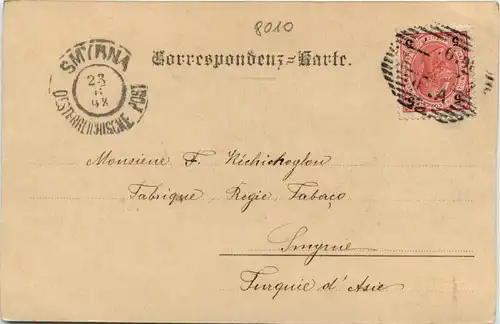 8010
SMYRNA
23
98
OESTERREICHISCHE POST
Correspondenz=Karte.
5 5
Monsieur F. Kéchichoglou
Fabrique Regie Tabaco
Smyrne
Turquie d'Asie